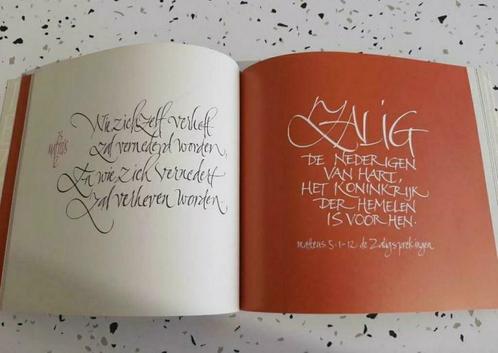 Wie zich zelf verheft
zal vernederd worden,
En wie zich vernedert
zal verheven worden.
ZALIG
DE NEDERIGEN
VAN HART,
HET KONINKRIJK
DER HEMELEN
IS VOOR HEN.
matteus 5.1-12 de Zaligsprekingen